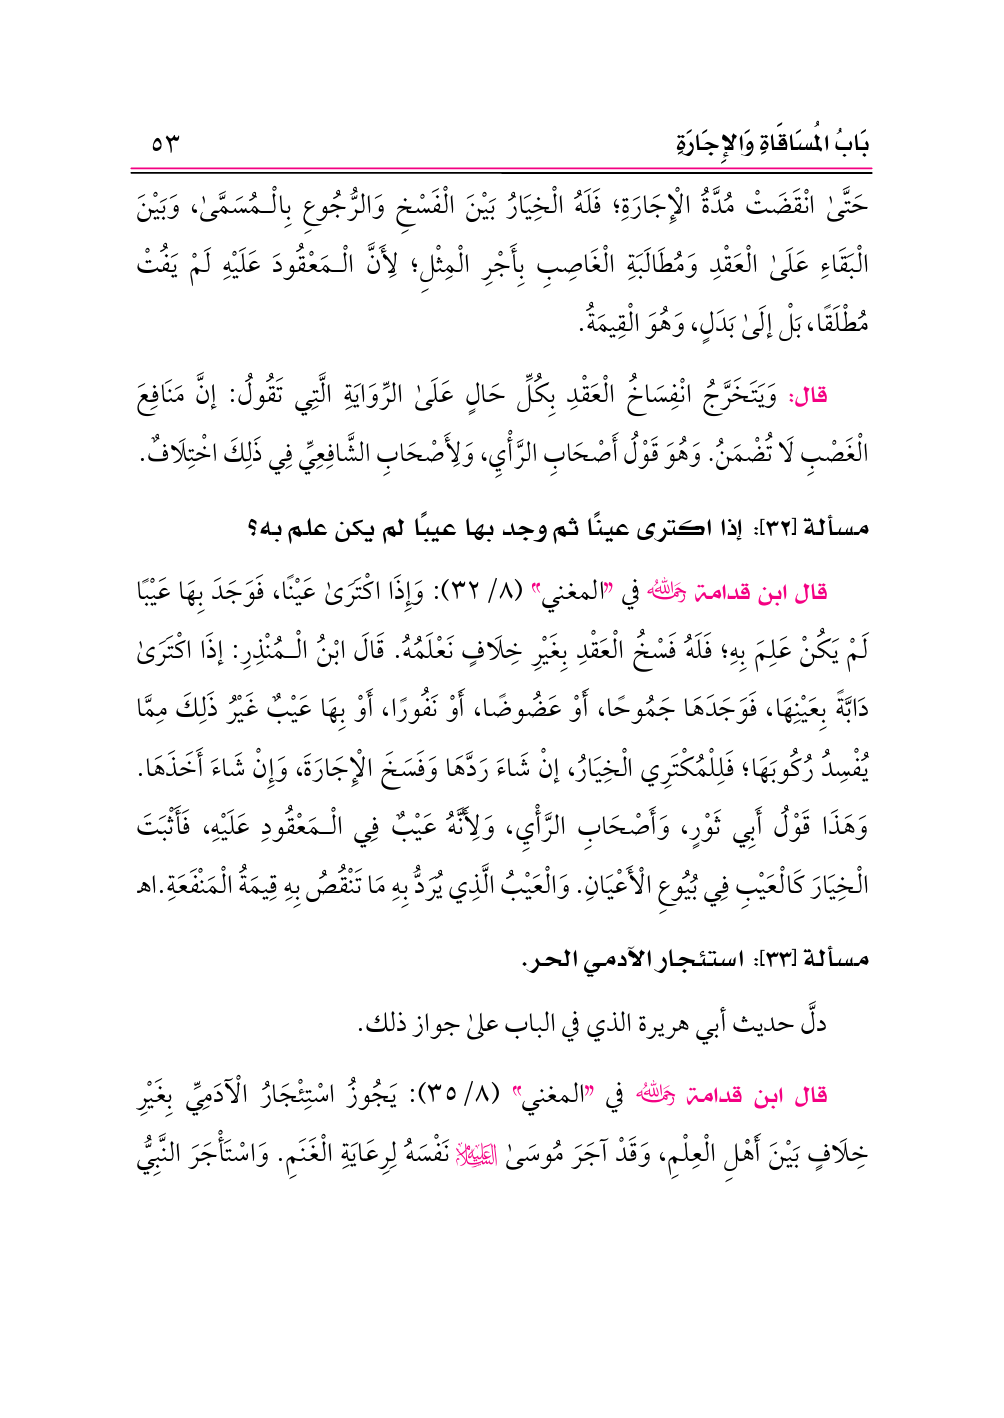 بَابُ المُسَاقَاةِ وَالإِجَارَةِ ٥٣
حَتَّىٰ انْقَضَتْ مُدَّةُ الْإِجَارَةِ؛ فَلَهُ الْخِيَارُ بَيْنَ الْفَسْخِ وَالرُّجُوعِ بِالْـمُسَمَّىٰ، وَبَيْنَ
الْبَقَاءِ عَلَىٰ الْعَقْدِ وَمُطَالَبَةِ الْغَاصِبِ بِأَجْرِ الْمِثْلِ؛ لِأَنَّ الْـمَعْقُودَ عَلَيْهِ لَمْ يَفُتْ
مُطْلَقًا، بَلْ إلَىٰ بَدَلٍ، وَهُوَ الْقِيمَةُ.
قال: وَيَتَخَرَّجُ انْفِسَاخُ الْعَقْدِ بِكُلِّ حَالٍ عَلَىٰ الرِّوَايَةِ الَّتِي تَقُولُ: إنَّ مَنَافِعَ
الْغَصْبِ لَا تُضْمَنُ. وَهُوَ قَوْلُ أَصْحَابِ الرَّأْيِ، وَلِأَصْحَابِ الشَّافِعِيِّ فِي ذَلِكَ اخْتِلَافٌ.
مسألة [٣٢]: إذا اكترى عينًا ثم وجد بها عيبًا لم يكن علم به؟
قال ابن قدامة رَحِمَهُ اللهُ في «المغني» (٨/ ٣٢): وَإِذَا اكْتَرَىٰ عَيْنًا، فَوَجَدَ بِهَا عَيْبًا
لَمْ يَكُنْ عَلِمَ بِهِ؛ فَلَهُ فَسْخُ الْعَقْدِ بِغَيْرِ خِلَافٍ نَعْلَمُهُ. قَالَ ابْنُ الْـمُنْذِرِ: إذَا اكْتَرَىٰ
دَابَّةً بِعَيْنِهَا، فَوَجَدَهَا جَمُوحًا، أَوْ عَضُوضًا، أَوْ نَفُورًا، أَوْ بِهَا عَيْبٌ غَيْرُ ذَلِكَ مِمَّا
يُفْسِدُ رُكُوبَهَا؛ فَلِلْمُكْتَرِي الْخِيَارُ، إنْ شَاءَ رَدَّهَا وَفَسَخَ الْإِجَارَةَ، وَإِنْ شَاءَ أَخَذَهَا.
وَهَذَا قَوْلُ أَبِي ثَوْرٍ، وَأَصْحَابِ الرَّأْيِ، وَلِأَنَّهُ عَيْبٌ فِي الْـمَعْقُودِ عَلَيْهِ، فَأَثْبَتَ
الْخِيَارَ كَالْعَيْبِ فِي بُيُوعِ الْأَعْيَانِ. وَالْعَيْبُ الَّذِي يُرَدُّ بِهِ مَا تَنْقُصُ بِهِ قِيمَةُ الْمَنْفَعَةِ.اهـ
مسألة [٣٣]: استئجار الآدمي الحر.
دلَّ حديث أبي هريرة الذي في الباب علىٰ جواز ذلك.
قال ابن قدامة رَحِمَهُ اللهُ في «المغني» (٨/ ٣٥): يَجُوزُ اسْتِئْجَارُ الْآدَمِيِّ بِغَيْرِ
خِلَافٍ بَيْنَ أَهْلِ الْعِلْمِ، وَقَدْ آجَرَ مُوسَىٰ عَلَيْهِ السَّلَامُ نَفْسَهُ لِرِعَايَةِ الْغَنَمِ. وَاسْتَأْجَرَ النَّبِيُّ